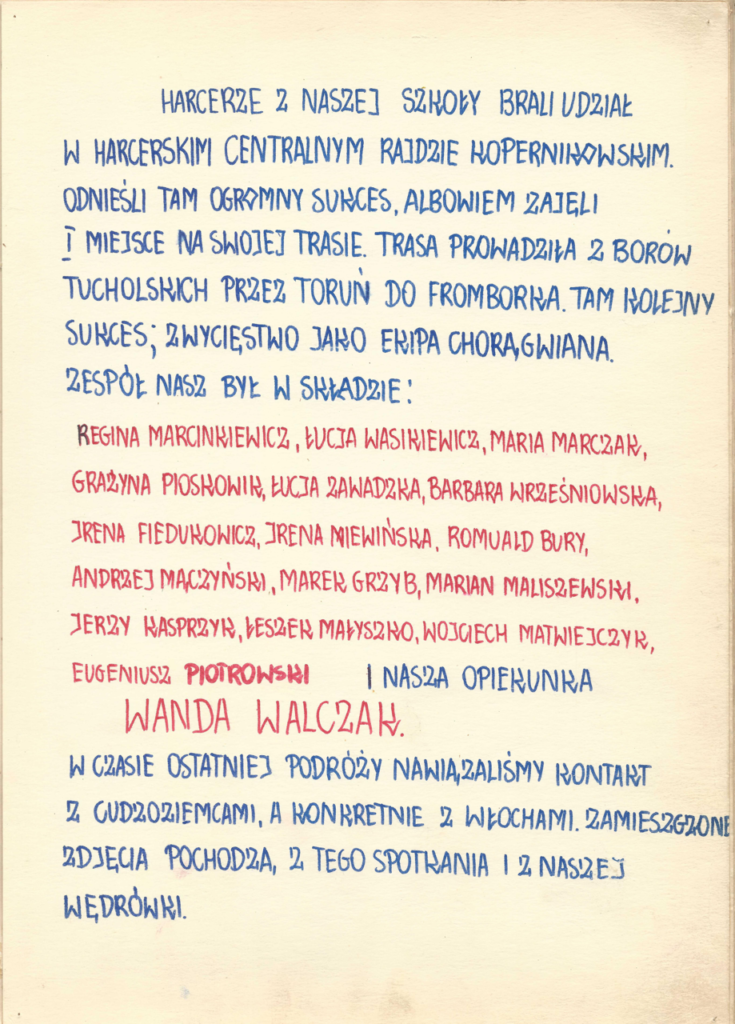 HARCERZE Z NASZEJ SZKOŁY BRALI UDZIAŁ
W HARCERSKIM CENTRALNYM RAJDZIE KOPERNIKOWSKIM.
ODNIEŚLI TAM OGROMNY SUKCES, ALBOWIEM ZAJĘLI
I MIEJSCE NA SWOJEJ TRASIE. TRASA PROWADZIŁA Z BORÓW
TUCHOLSKICH PRZEZ TORUŃ DO FROMBORKA. TAM KOLEJNY
SUKCES; ZWYCIĘSTWO JAKO EKIPA CHORĄGWIANA.
ZESPÓŁ NASZ BYŁ W SKŁADZIE:
REGINA MARCINKIEWICZ, ŁUCJA WASIKIEWICZ, MARIA MARCZAK,
GRAŻYNA PIOSKOWIK, ŁUCJA ZAWADZKA, BARBARA WRZEŚNIOWSKA,
IRENA FIEDUKOWICZ, IRENA NIEWIŃSKA, ROMUALD BURY,
ANDRZEJ MĄCZYŃSKI, MAREK GRZYB, MARIAN MALISZEWSKI,
JERZY KASPRZYK, LESZEK MAŁYSZKO, WOJCIECH MATWIEJCZYK,
EUGENIUSZ PIOTROWSKI I NASZA OPIEKUNKA
WANDA WALCZAK.
W CZASIE OSTATNIEJ PODRÓŻY NAWIĄZALIŚMY KONTAKT
Z CUDZOZIEMCAMI, A KONKRETNIE Z WŁOCHAMI. ZAMIESZCZONE
ZDJĘCIA POCHODZĄ Z TEGO SPOTKANIA I Z NASZEJ
WĘDRÓWKI.